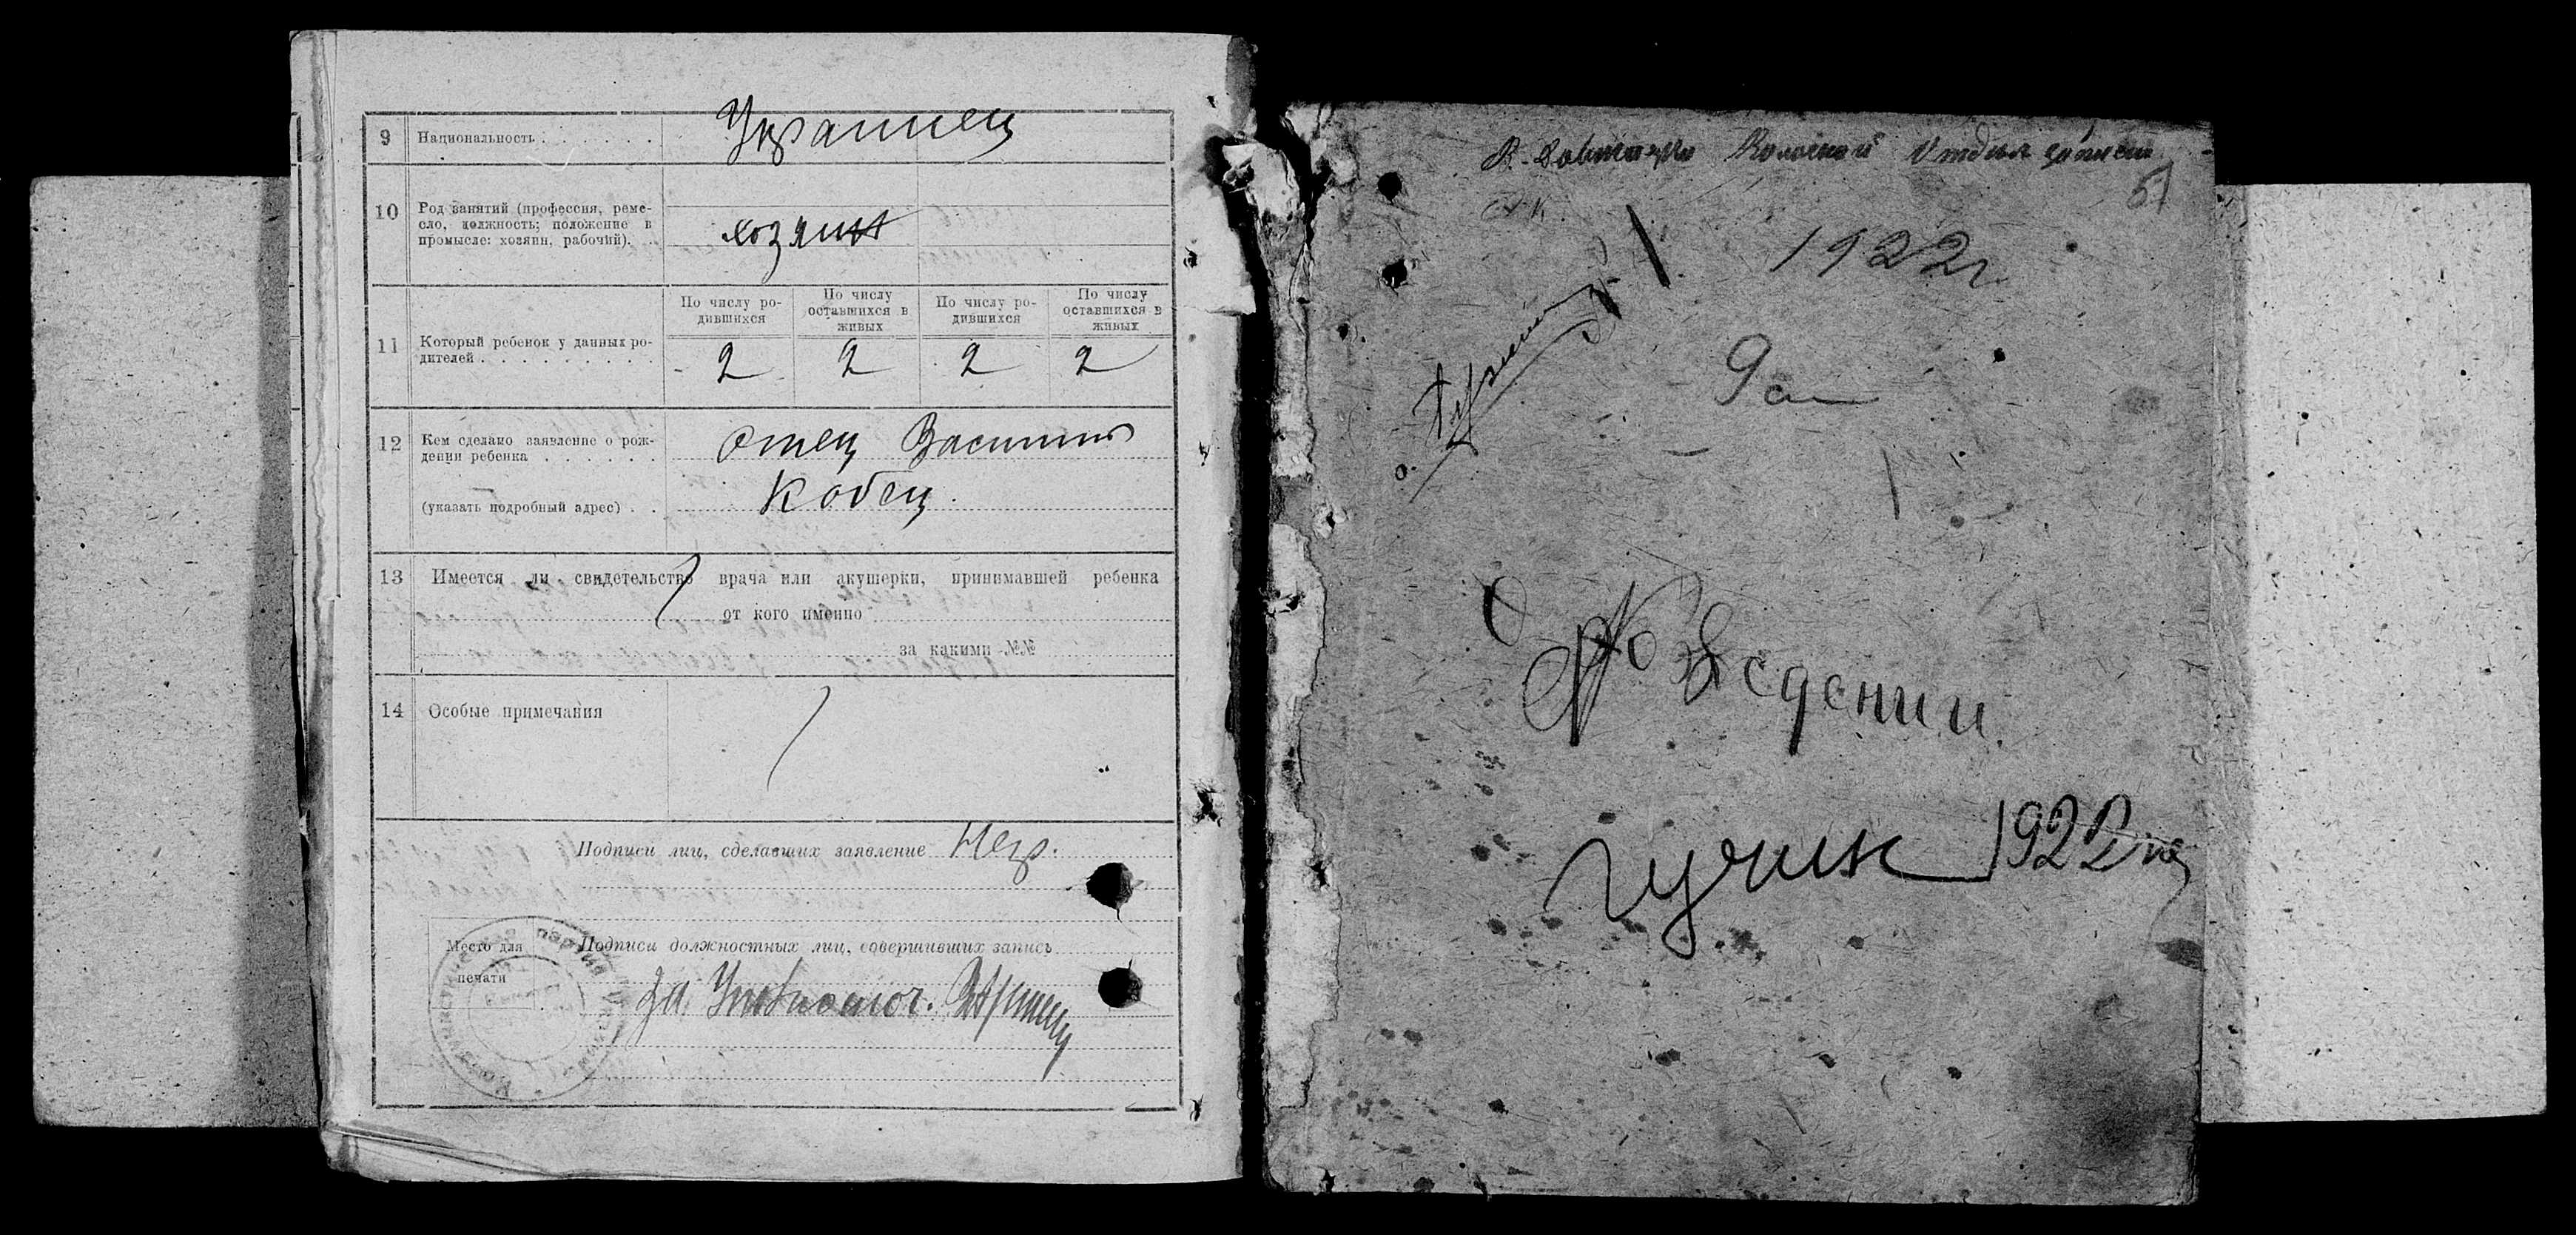 9 Национальность . . . . . . Украинец
10 Род занятий (профессия, реме-
сло, должность; положение в
промысле: хозяин, рабочий). . . хозяин
По числу ро-
дившихся
По числу
оставшихся в
живых
По числу ро-
дившихся
По числу
оставшихся в
живых
11 Который ребенок у данных ро-
дителей . . . . . . . . . .
2 2 2 2
12 Кем сделано заявление о рож-
дении ребенка . . . . . . отец Василий
(указать подробный адрес) . . Кобец.
13 Имеется ли свидетельство врача или акушерки, принимавшей ребенка
от кого именно
за какими №№
14 Особые примечания
Подписи лиц, сделавших заявление Негр.
Место для
печати
Подписи должностных лиц, совершивших запись
за
Волосной Отдел записи
А К.
51
1922г.
О
Рождении
1922